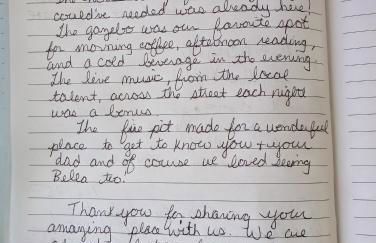 could've needed was already here!
The gazebo was our favorite spot
for morning coffee, afternoon reading,
and a cold beverage in the evening.
The live music, from the local
talent, across the street each night
was a bonus.
The fire pit made for a wonderful
place to get to know you + your
dad and of course we loved seeing
Bella too!
Thank you for sharing your
amazing place with us. We are